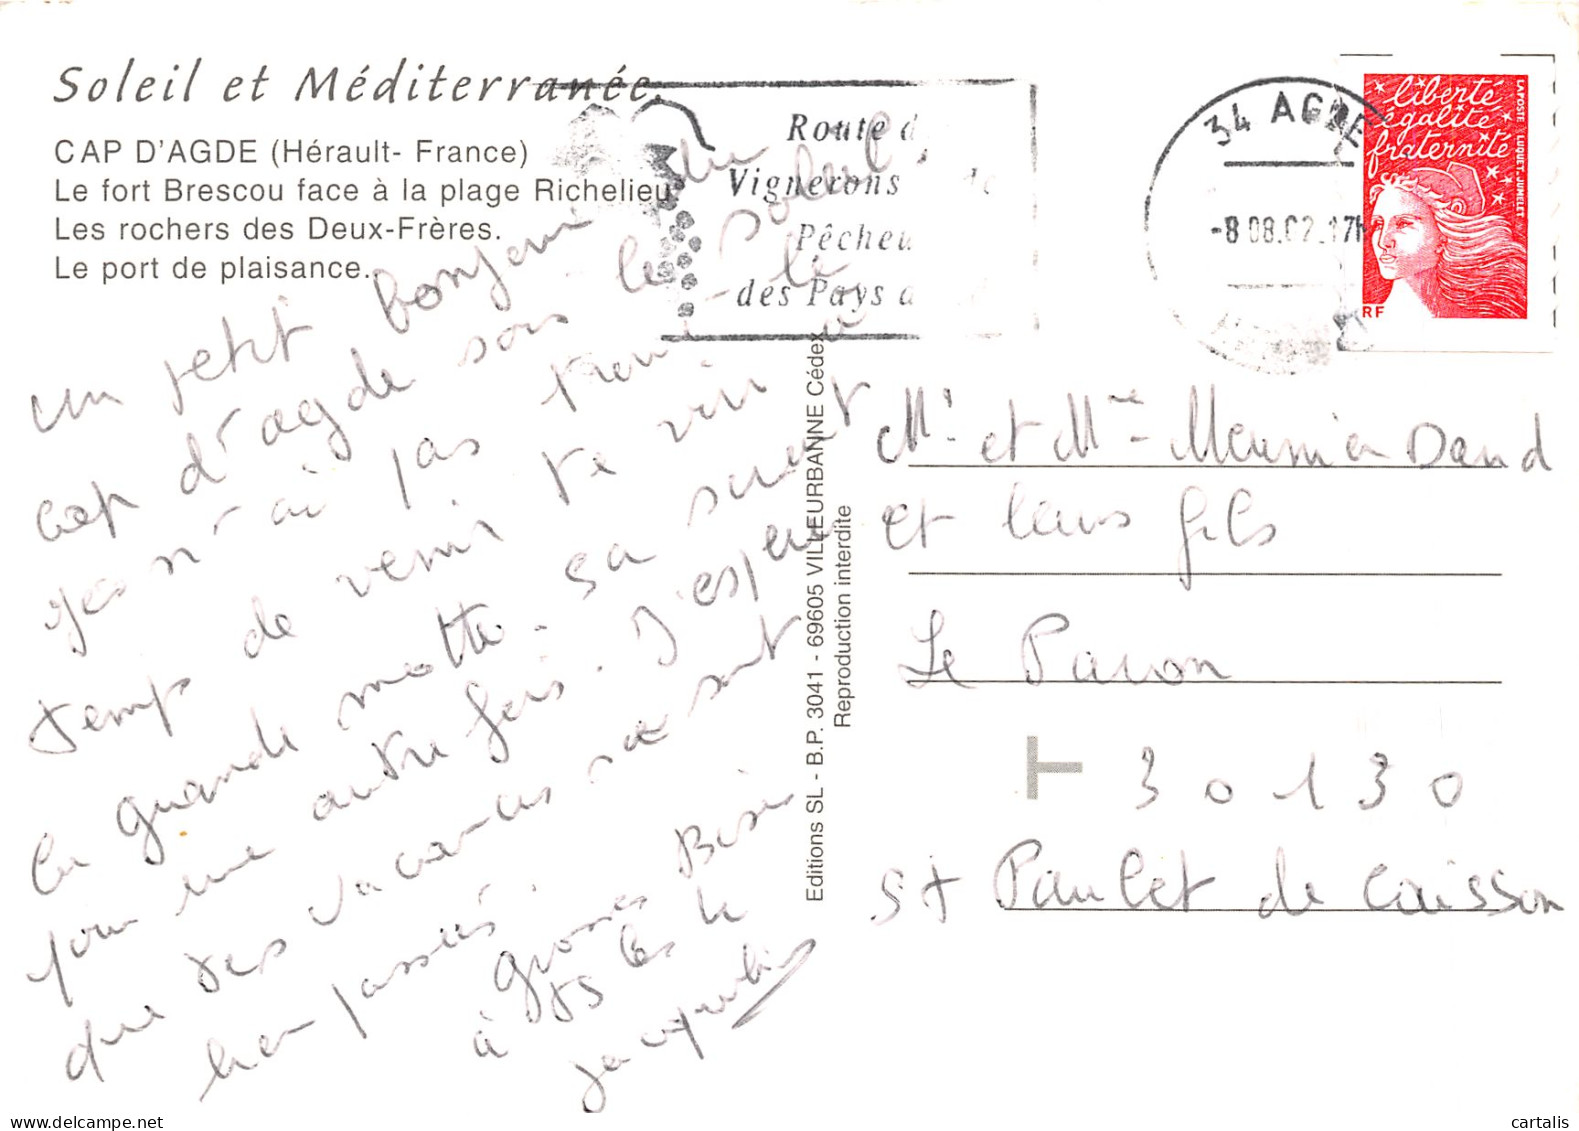 Soleil et Méditerranée
CAP D'AGDE (Hérault- France)
Le fort Brescou face à la plage Richelieu
Les rochers des Deux-Frères.
Le port de plaisance.
Route d
Vignerons
Pêcheu
des Pays
34 AGDE
-8 08.02.17H
liberté
égalité
fraternité
LAPOSTE LUQUET.JUMELET
RF
un petit bonjour du
cap d'agde sous le soleil,
je n'ai pas trouvé le
temps de venir te voir à
la grande motte. sa seras
pour une autre fois. J'espère
que tes vacances se sont
bien passées.
grosses Bises
à vs les
Jacqueline
Editions SL - B.P. 3041 - 69605 VILLEURBANNE Cédex
Reproduction interdite
Mr et Mme Meunier David
et leurs fils
Le Pavon
T 30130
St Paulet de Caisson
cartalis